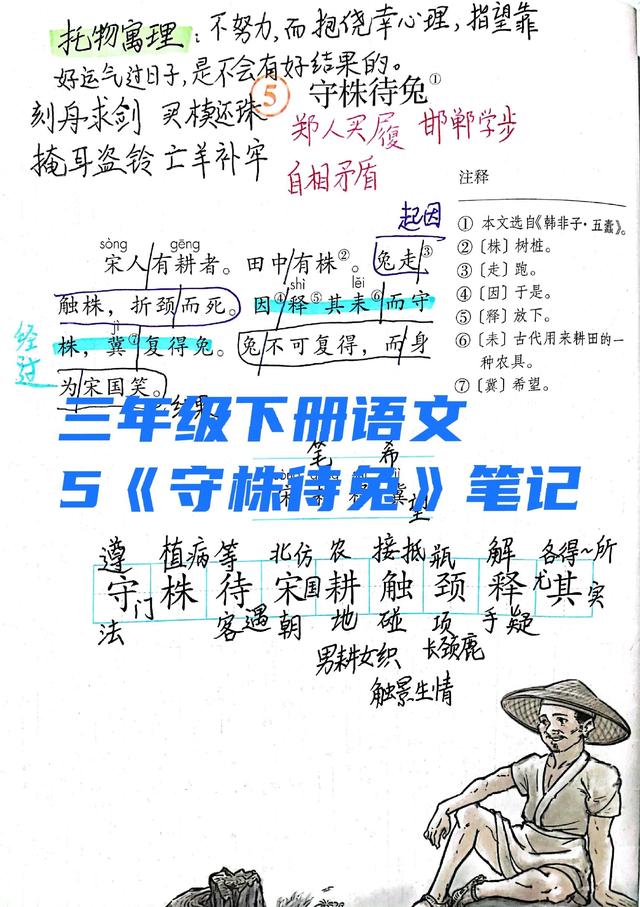 托物寓理：不努力，而抱侥幸心理，指望靠
好运气过日子，是不会有好结果的。
刻舟求剑 买椟还珠
掩耳盗铃 亡羊补牢
⑤ 守株待兔①
郑人买履 邯郸学步
自相矛盾
起因
sòng gēng
宋人有耕者。田中有株②。兔走③
shì lěi
触株，折颈而死。因④释⑤其耒⑥而守
jì
株，冀⑦复得兔。兔不可复得，而身
为宋国笑。
经过
结果
注释
① 本文选自《韩非子·五蠹》。
② 〔株〕树桩。
③ 〔走〕跑。
④ 〔因〕于是。
⑤ 〔释〕放下。
⑥ 〔耒〕古代用来耕田的一
种农具。
⑦ 〔冀〕希望。
三年级下册语文
5《守株待兔》笔记
笔 希
望
遵 植病 等 北仿 农 接抵 瓶 解 各得~所
守 株 待 宋 耕 触 颈 释 其
门 国 尤 实
法 客遇 朝 地 碰 项 手疑
男耕女织 长颈鹿
触景生情